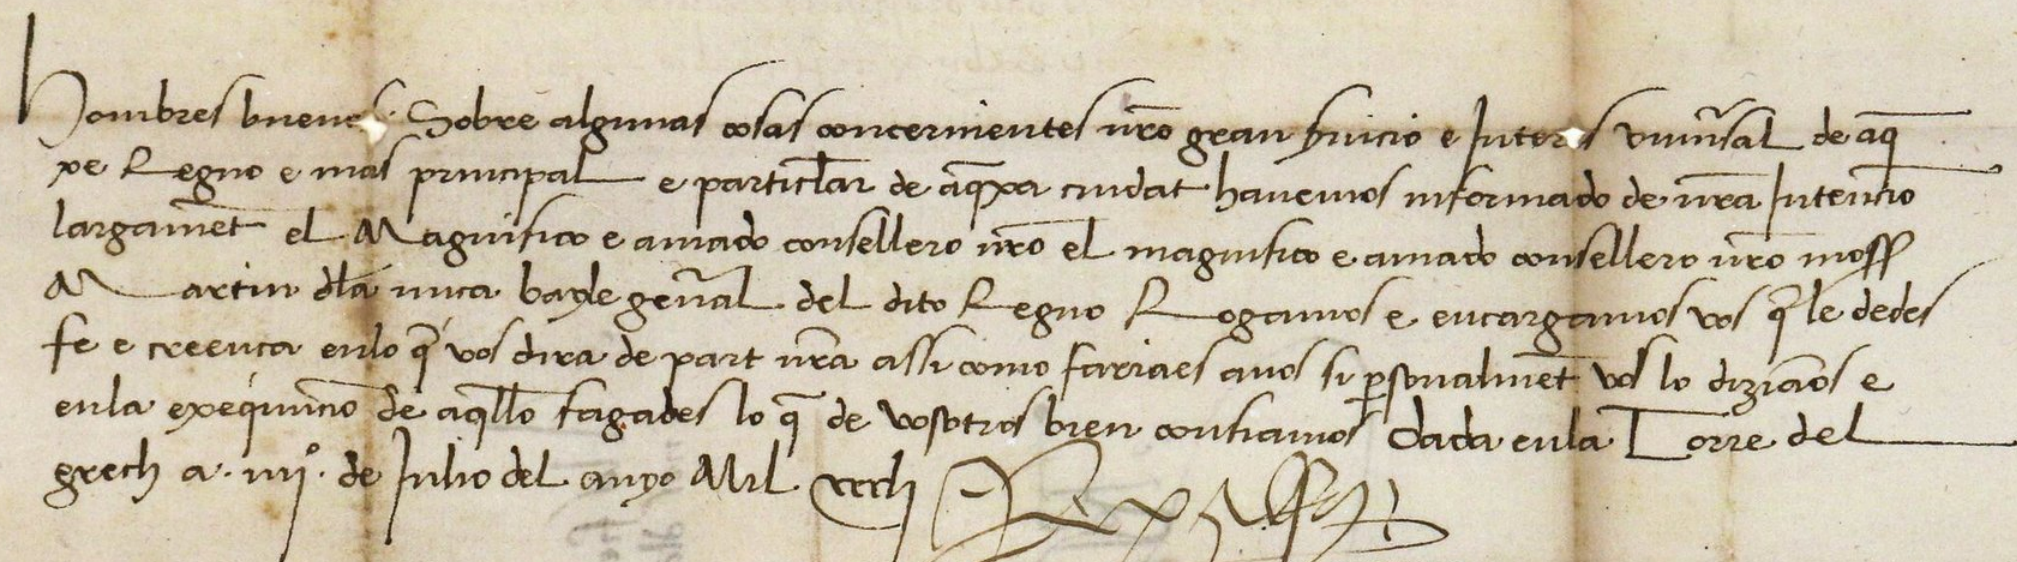 Hombres buenos. Sobre algunas cosas concernientes nr̃o gran s̃uicio e Interes vniũsal de aq̃
xe Regno e mas principal e particl̃ar de aq̃xa ciudat hauemos informado de nr̃a Intencio
largamẽt el Magnifico e amado consellero nr̃o el magnifico e amado consellero nr̃o moss
Martin dl̃a nuca bayle geñal del dito Regno Rogamos e encargamos vos q̃ le dedes
fe e creenca enlo q̃ vos dira de part nr̃a assi como fariaes anos si ꝑsonalmẽt vos lo diziamos e
enla exequucio de aq̃llo fagades lo q̃ de vosotros bien confiamos Dada enla Torre del
grech a . iiij.º de Julio del anyo Mil